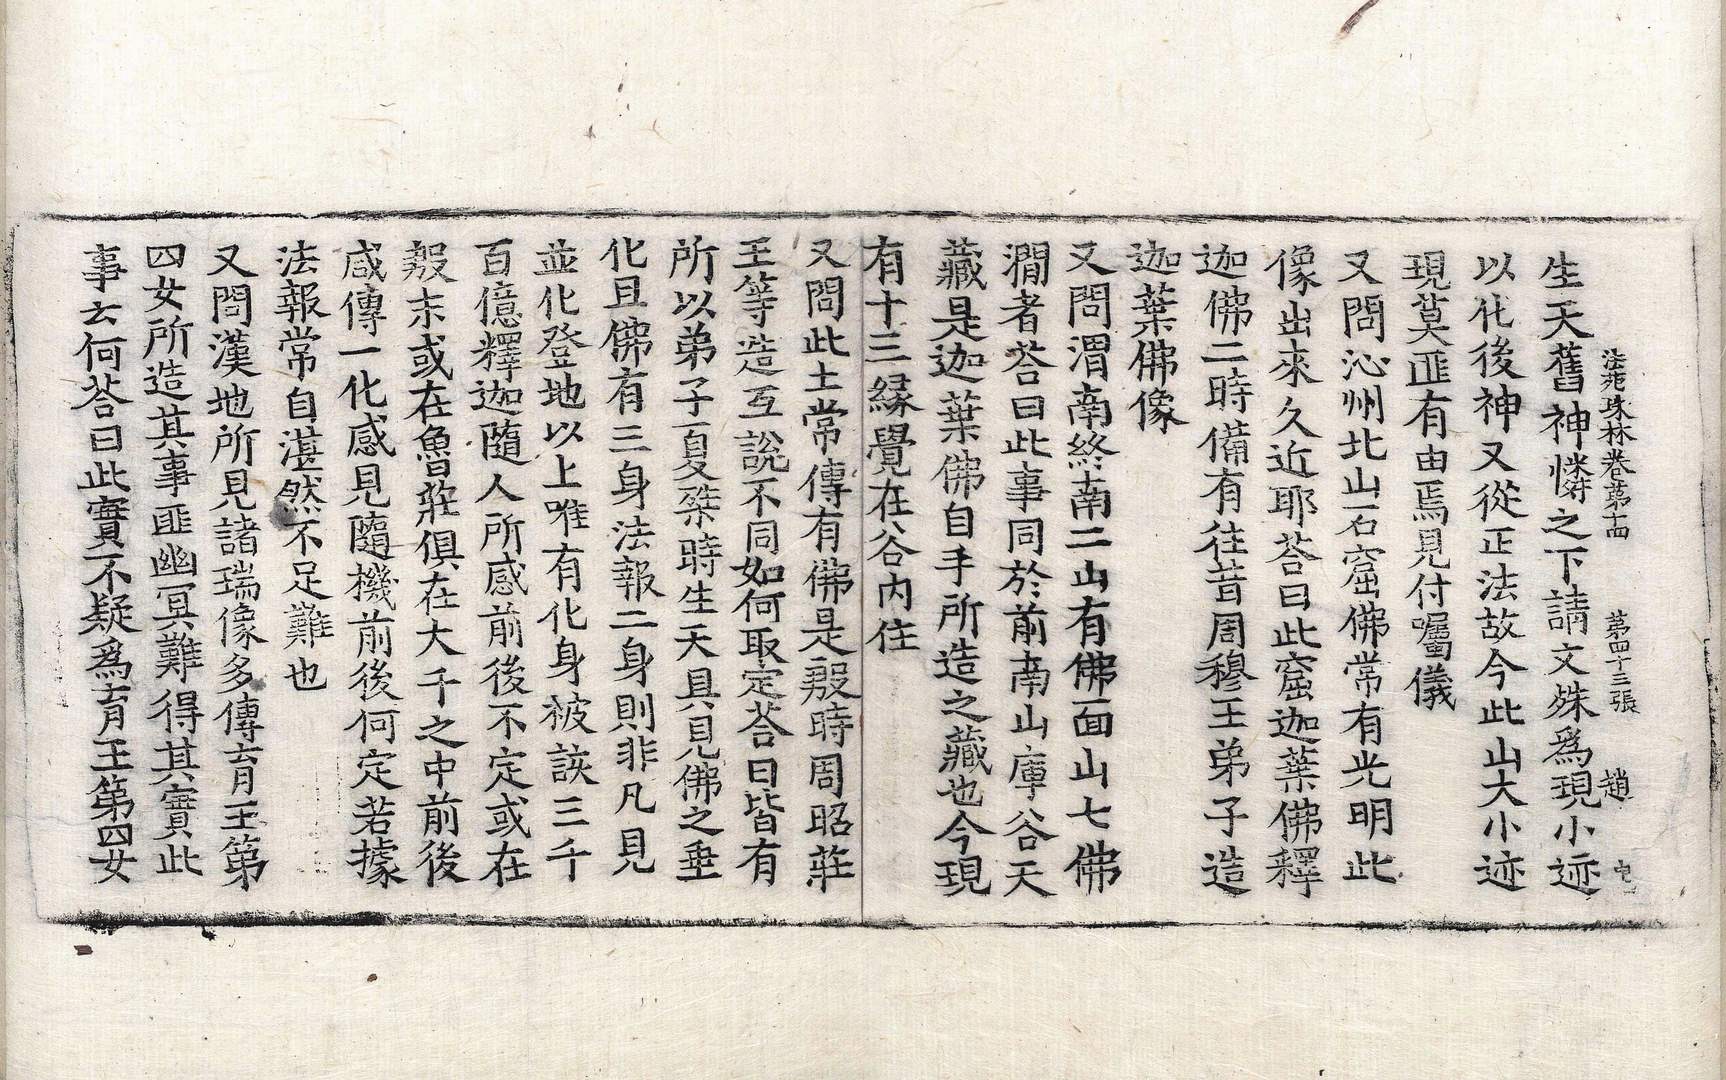 法苑珠林卷第十四 第四十三張 趙
生天舊神憐之下請文殊爲現小迹
以化後神又從正法故今此山大小迹
現莫匪有由焉見付囑儀
又問沁州北山石窟佛常有光明此
像出來久近耶荅曰此窟迦葉佛釋
迦佛二時備有往昔周穆王弟子造
迦葉佛像
又問渭南終南二山有佛面山七佛
澗者荅曰此事同於前南山庫谷天
藏是迦葉佛自手所造之藏也今現
有十三緣覺在谷內住
又問此土常傳有佛是殷時周昭莊
王等造互說不同如何取定荅曰皆有
所以弟子夏桀時生天具見佛之垂
化且佛有三身法報二身則非凡見
並化登地以上唯有化身被該三千
百億釋迦隨人所感前後不定或在
殷末或在魯莊俱在大千之中前後
咸傳一化感見隨機前後何定若據
法報常自湛然不足難也
又問漢地所見諸瑞像多傳育王第
四女所造其事匪幽冥難得其實此
事云何荅曰此實不疑爲育王第四女